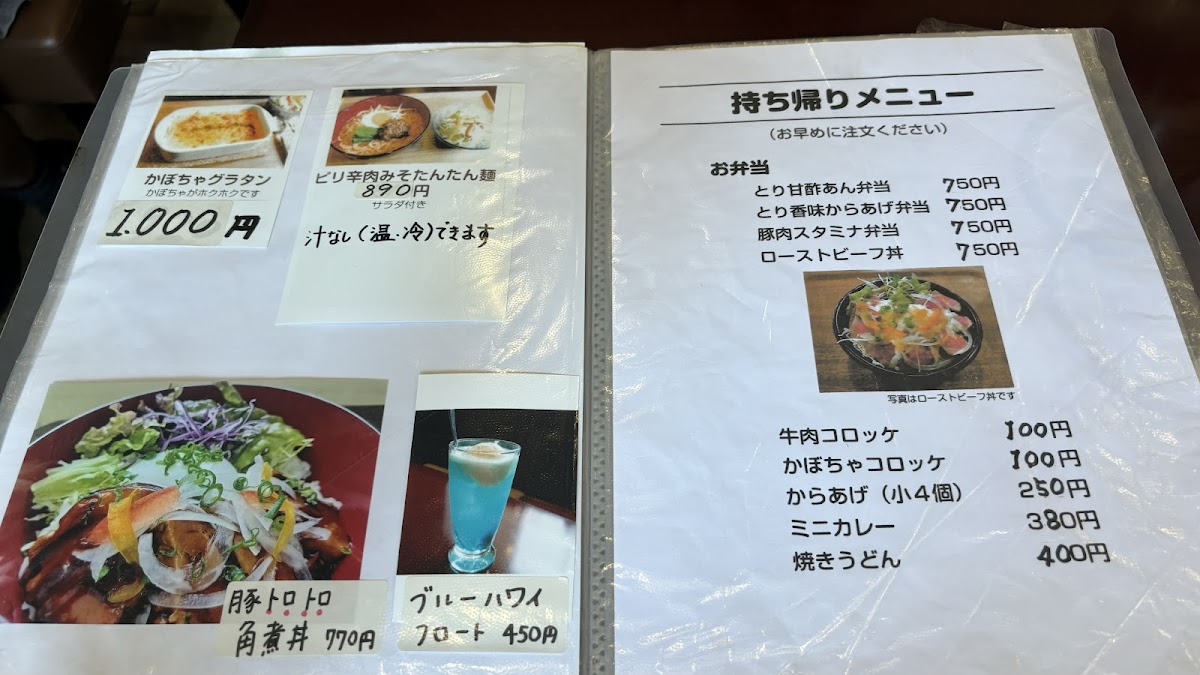 かぼちゃグラタン
かぼちゃがホクホクです
1.000円
ピリ辛肉みそたんたん麺
890円
サラダ付き
汁なし(温・冷)できます
豚トロトロ
角煮丼 770円
ブルーハワイ
フロート 450円
持ち帰りメニュー
(お早めに注文ください)
お弁当
とり甘酢あん弁当 750円
とり香味からあげ弁当 750円
豚肉スタミナ弁当 750円
ローストビーフ丼 750円
写真はローストビーフ丼です
牛肉コロッケ 100円
かぼちゃコロッケ 100円
からあげ(小4個) 250円
ミニカレー 380円
焼きうどん 400円